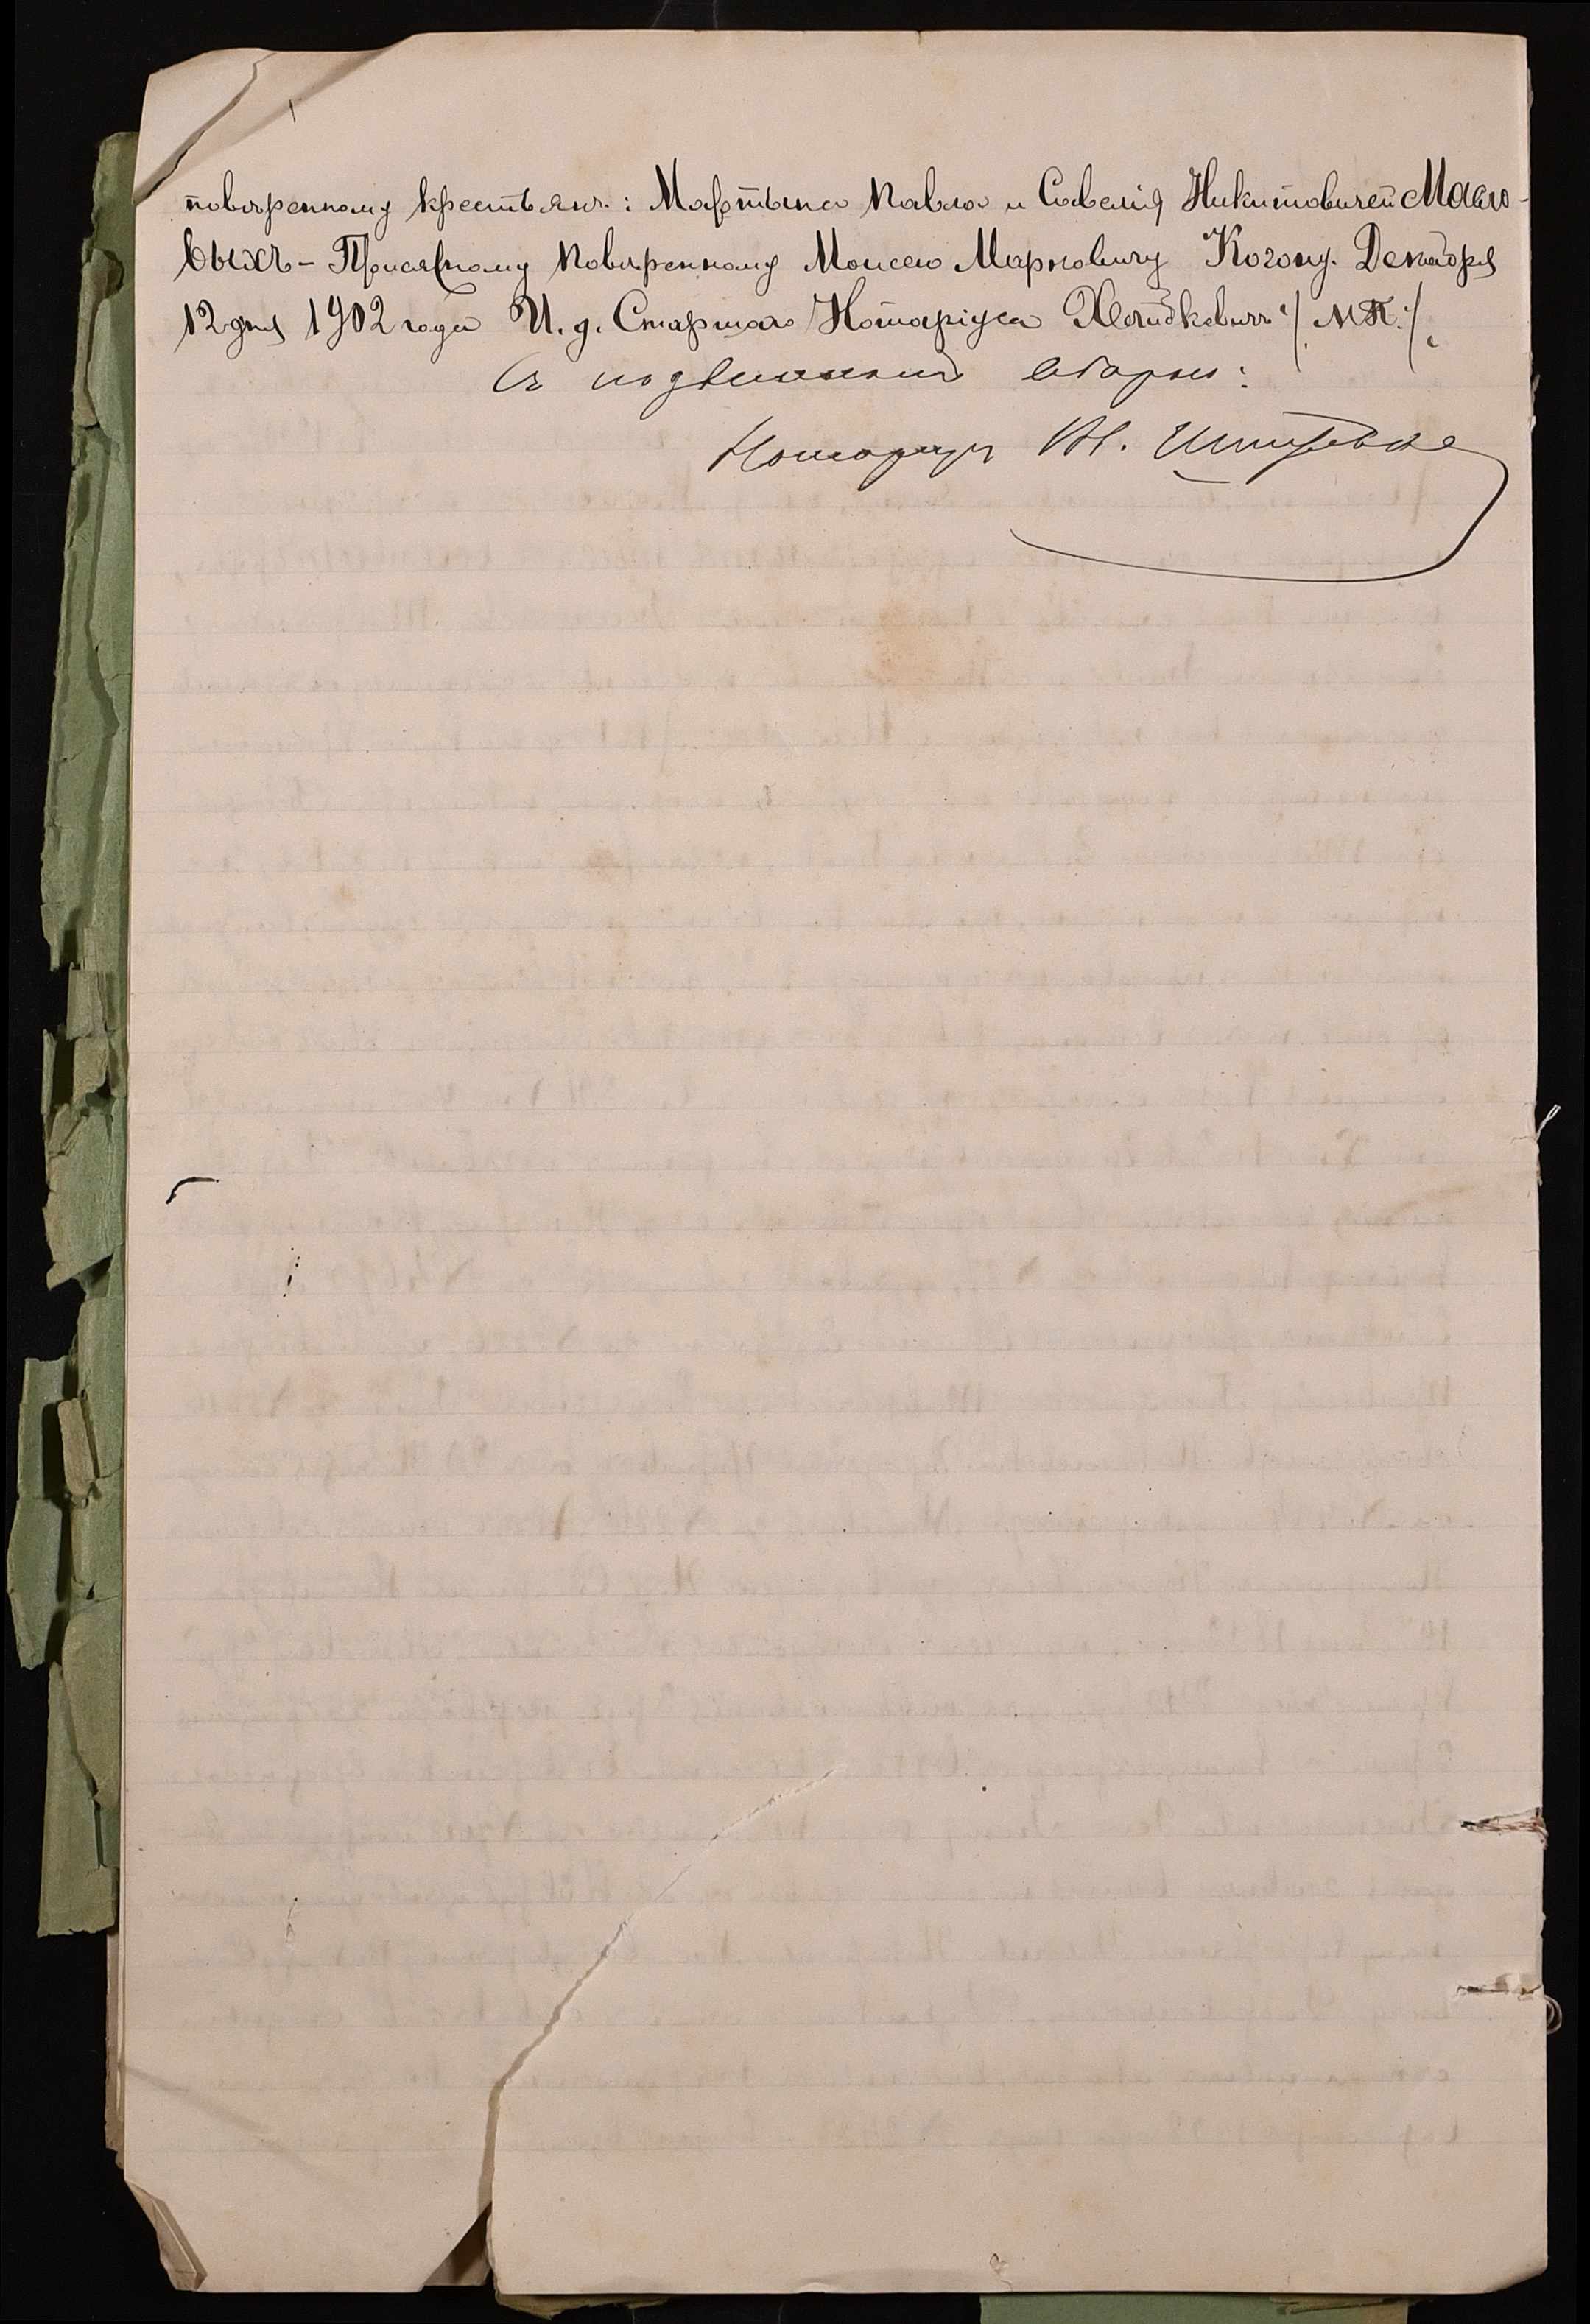 повѣренному крестьянъ: Мартына Павла и Савелія Никитовичей
выхъ – Присяжному Повѣренному Моисею Марковичу Когону. Декабря
12 дня 1902 года И. д. Старшаго Нотаріуса /М.П./.
Съ подлинной вѣрно:
Нотаріусъ Вл.